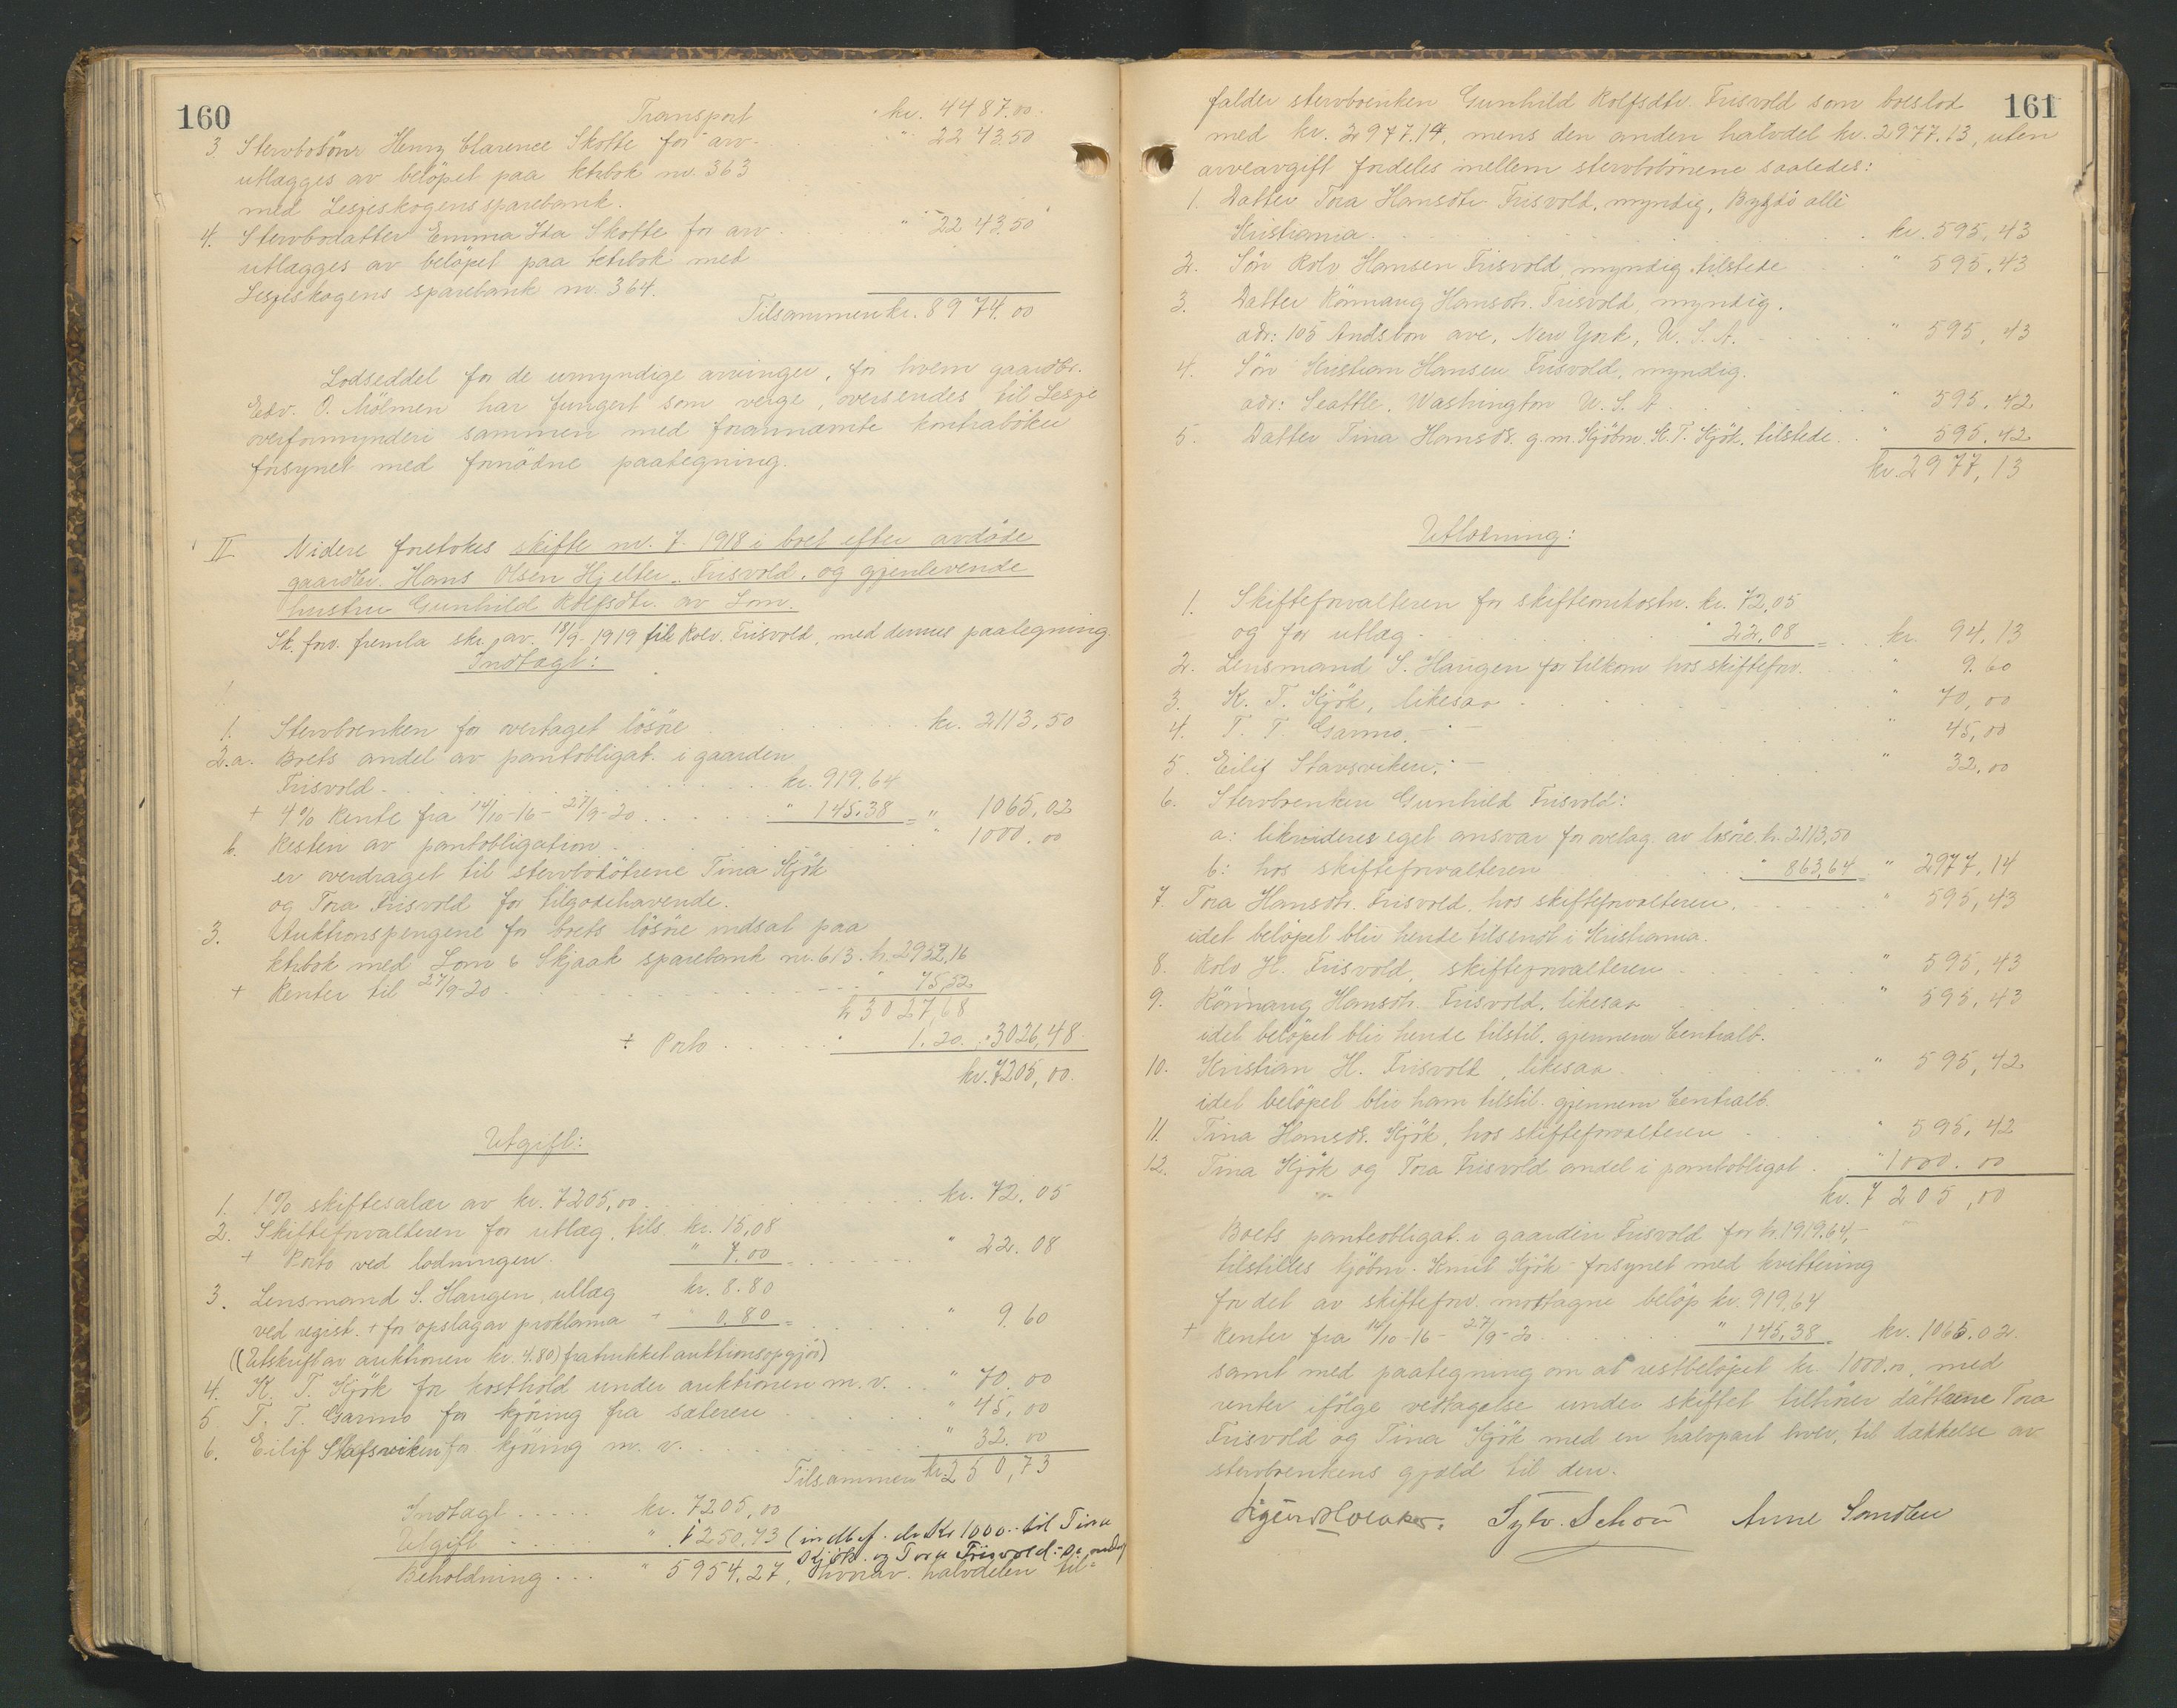 160
Transport kr. 4487.00
3 Stervbosönn Henry Clarence Skotte for arv " 2243.50
utlægges av belöpet paa ktrbok nr. 363
med Lesjeskogens sparebank.
4. Stervbodatter Emma Ida Skotte for arv " 2243.50
utlægges av belöpet paa ktrbok med
Lesjeskogens sparebank nr. 364.
Tilsammen kr. 8974.00
Lodseddel for de umyndige arvinger, for hvem gaardbr.
Edv. O. Mölmen har fungert som verge, oversendes til Lesje
overformynderi sammen med forannævnte kontraböker
forsynet med fornödne paategning.
II Videre foretokes skifte nr. 7-1918 i boet efter avdöde
gaardbr. Hans Olsen Hjelter-Frisvold, og gjenlevende
hustru Gunhild Rolfsdtr. av Lom.
Sk. forv. fremla skr. av 18/9-1919 til Rolv Frisvold, med dennes paategning.
Indtægt:
1. Stervbrenken for overtaget lösöre kr. 2113,50
2.a. Boets andel av pantobligat. i gaarden
Frisvold kr. 919.64
+ 4% Rente fra 14/10-16 - 27/9-20 " 145.38 = " 1065,02
b. Resten av pantobligation " 1000.00
er overdraget til stervbodötrene Tina Kjök
og Tora Frisvold for tilgodehavende.
3. Auktionspengene for boets lösöre indsat paa
ktrbok med Lom & Skjaak sparebank nr. 613. kr. 2952,16
+ Renter til 27/9-20 " 75,52
kr 3027,68
÷ Porto " 1.20 " 3026,48
kr. 7205,00.
Utgift:
1. 1% skiftesalær av kr. 7205,00 kr. 72.05
2. Skifteforvalteren for utlæg, tils. kr. 15,08
+ Porto ved lodningen " 7.00 = " 22.08
3. Lensmand S. Haugen, utlæg kr. 8.80
ved regist. + for opslag av proklama + " 0.80 = " 9.60
(Utskrift av auktionen kr. 4.80) fratrukket auktionsopgjör)
4. K. T. Kjök for kosthold under auktionen m.v. " 70.00
5 T. T. Garmo for kjöring fra sæteren " 45,00
6. Eilif Stafsviken for kjöring m. v. " 32.00
Tilsammen kr. 250,73
Indtægt kr. 7205,00
Utgift " 1250,73 (indbef. de kr 1000.- til Tina
Kjök og Tora Frisvold:
Beholdning " 5954.27, hvorav halvdelen til-
161
falder stervbrenken Gunhild Rolfsdtr. Frisvold som boeslod
med kr. 2977.14, mens den anden halvdel kr. 2977.13, uten
arveavgift fordeles mellem stervbobörnene saaledes:
1. Datter Tora Hansdtr Frisvold, myndig, Bygdö allé
Kristiania kr. 595,43
2. Sön Rolv Hansen Frisvold, myndig, tilstede " 595.43
3. Datter Rönnaug Hansdtr. Frisvold, myndig.
adr: 105 ave, New York, U. S. A. " 595,43
4. Sön Kristian Hansen Frisvold, myndig.
adr: Seattle, Washington U. S. A " 595.42
5. Datter Tina Hansdtr. g.m. Kjöbm K. T. Kjök, tilstede " 595.42
kr. 2977,13
Utlodning:
1. Skifteforvalteren for skifteomkostn. kr. 72,05
og for utlæg " 22,08 = kr. 94,13
2. Lensmand S. Haugen for tilkom. hos skifteforv. " 9.60
3. K. T. Kjök, likesaa " 70,00
4. T. T. Garmo, - " - " 45,00
5. Eilif Stavsviken, - " 32,00
6. Stervbrenken Gunhild Frisvold:
a: likvideres eget ansvar for overtag. av lösöre. kr. 2113,50
b: hos skifteforvalteren " 863,64 = " 2977,14
7. Tora Hansdtr. Frisvold, hos skifteforvalteren " 595,43
idet belöpet blir hende tilsendt i Kristiania.
8. Rolv H. Frisvold, skifteforvalteren " 595,43
9. Rönnaug Hansdtr Frisvold, likesaa " 595,43
idet belöpet blir hende tilstil. gjennem Centralb.
10. Kristian H. Frisvold, likesaa " 595,42
idet belöpet blir ham tilstil. gjennem Centralb.
11. Tina Hansdtr. Kjök, hos skifteforvalteren " 595,42
12. Tina Kjök og Tora Frisvold andel i pantobligat. " 1000.00
kr. 7205,00
Boets panteobligat. i gaarden Frisvold for kr. 1919.64,-
tilstilles kjöbm. Knut Kjök forsynet med kvittering
for det av skifteforv. mottagne belöp kr 919,64
+ Renter fra 14/10-16 - 27/9-20 " 145,38 kr. 1065.02
samt med paategning om at restbelöpet kr. 1000.00, med
renter ifölge vedtagelse under skiftet tilhörer döttrene Tora
Frisvold og Tina Kjök med en halvpart hver, til dækkelse av
stervbrenkens gjæld til den.
Sylv. Schou Anne Sandbu